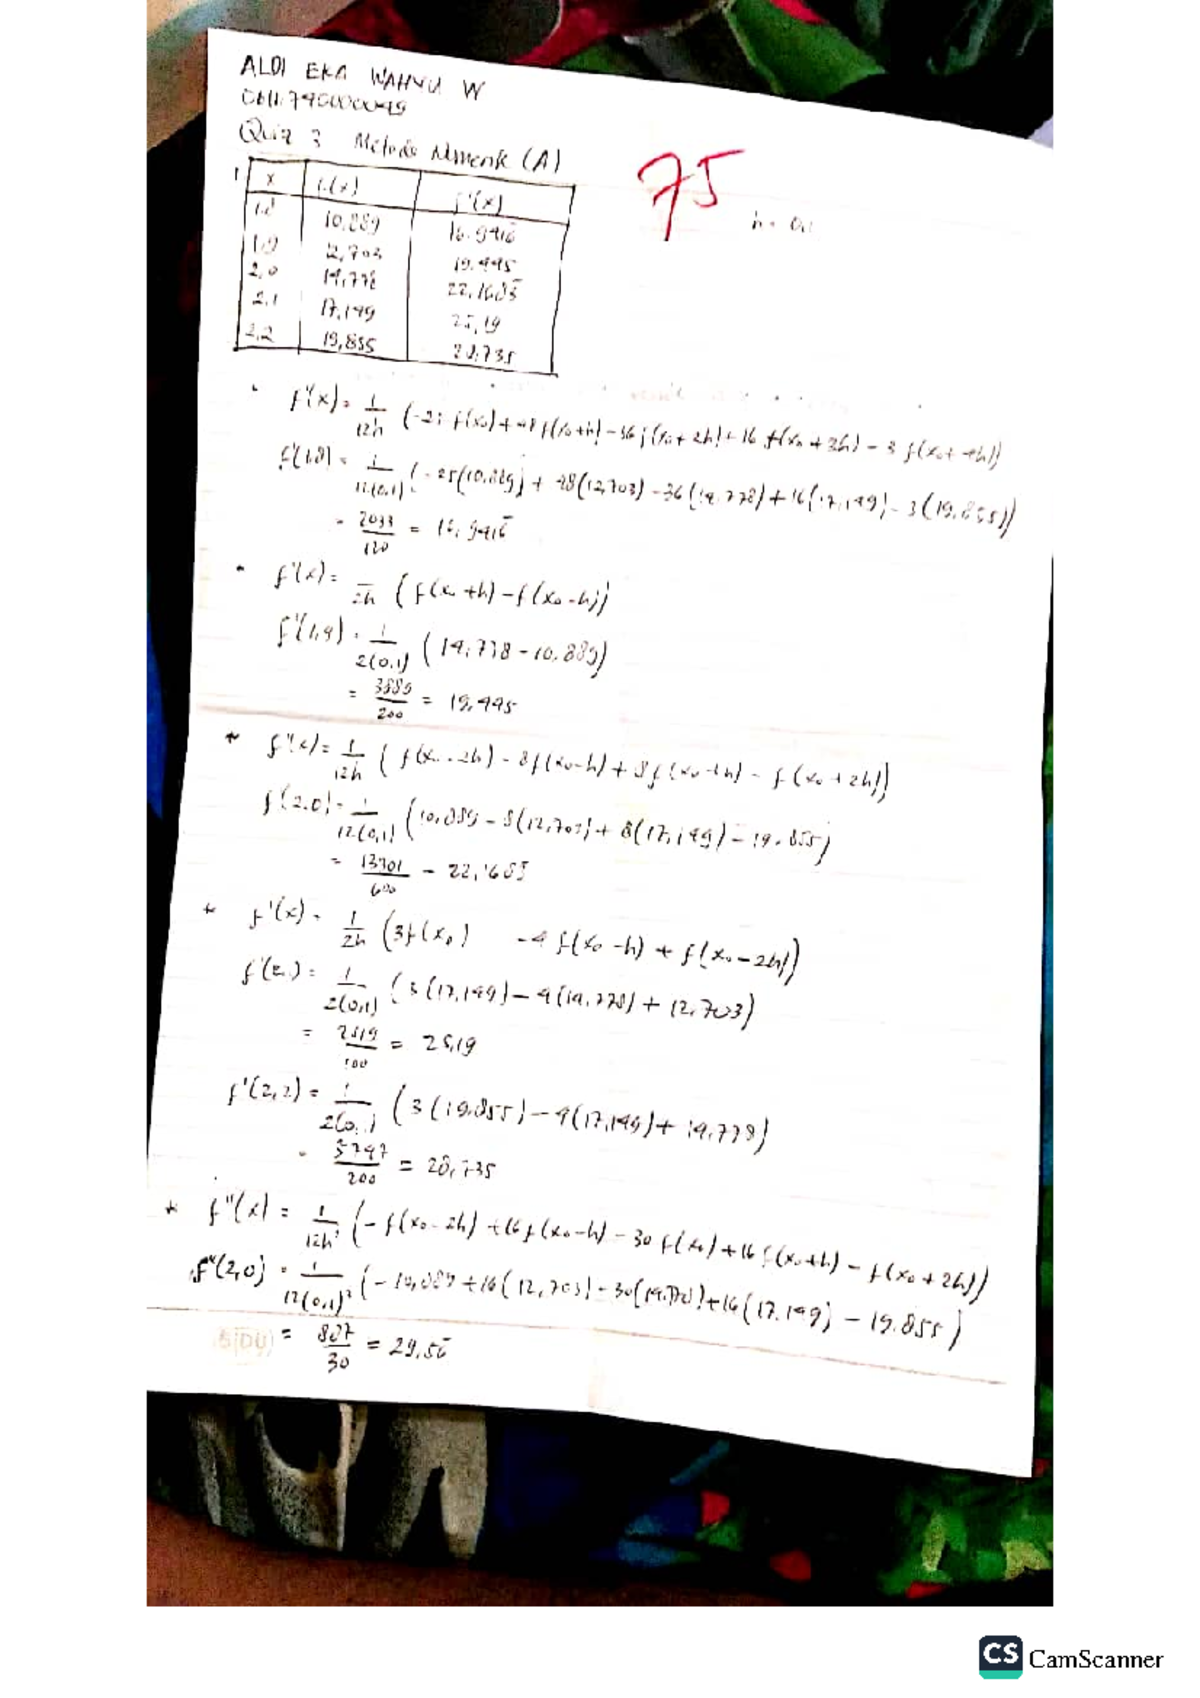 ALDI EKA WAHYU W
Quiz 3 Metode Numerik (A)
75
h = 0,1
1 x f(x) f'(x)
1.8 10.889 16.9416
1.9 12,703 19.445
2,0 14,778 22,1683
2,1 17,149 25,19
2,2 19,855 28,735
f'(x) = 1/12h (-25 f(x₀) + 48 f(x₀+h) - 36 f(x₀+2h) + 16 f(x₀+3h) - 3 f(x₀+4h))
f'(1,8) = 1/12(0,1) (-25(10.889) + 48(12,703) - 36(14.778) + 16(17,149) - 3(19.855))
= 2033/120 = 16,9416
f'(x) = 1/2h (f(x₀+h) - f(x₀-h))
f'(1,9) = 1/2(0,1) (14.778 - 10.889)
= 3889/200 = 19,445
f'(x) = 1/12h (f(x₀-2h) - 8f(x₀-h) + 8f(x₀+h) - f(x₀+2h))
f'(2.0) = 1/12(0,1) (10,889 - 8(12,703) + 8(17,149) - 19.855)
= 13301/600 = 22,1683
f'(x) = 1/2h (3f(x₀) - 4 f(x₀-h) + f(x₀-2h))
= 1/2(0,1) (3(17,149) - 4(14.778) + 12,703)
= 2519/100 = 25,19
f'(2,2) = 1/2(0,1) (3(19.855) - 4(17,149) + 14.778)
= 5747/200 = 28,735
f''(x) = 1/12h² (-f(x₀-2h) + 16f(x₀-h) - 30 f(x₀) + 16 f(x₀+h) - f(x₀+2h))
f''(2,0) = 1/12(0,1)² (-10,889 + 16(12,703) - 30(14.778) + 16(17.149) - 19.855)
SIDU
= 887/30 = 29,56
CS CamScanner